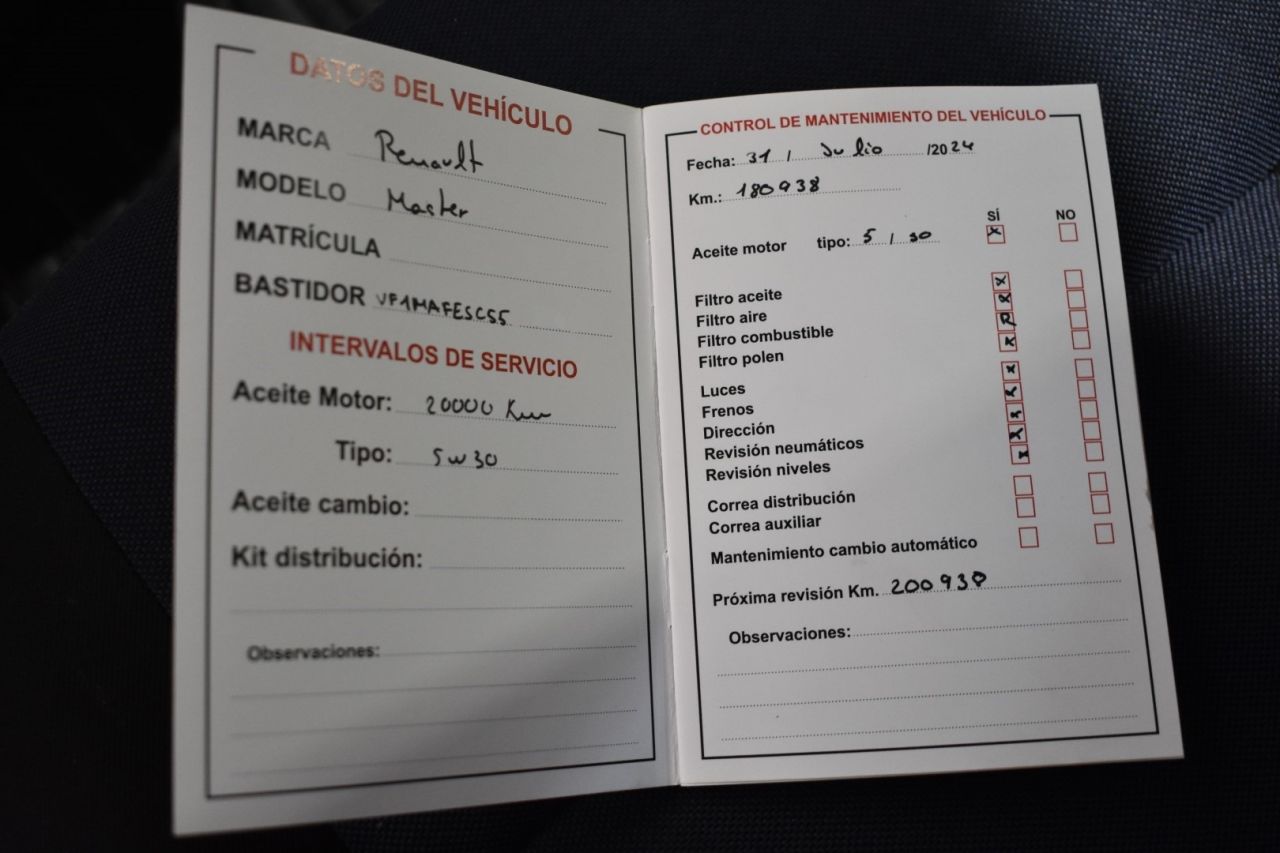 DATOS DEL VEHÍCULO
MARCA Renault
MODELO Master
MATRÍCULA
BASTIDOR VF1MAFESCS5
INTERVALOS DE SERVICIO
Aceite Motor: 20000 Km
Tipo: 5w30
Aceite cambio:
Kit distribución:
Observaciones:
CONTROL DE MANTENIMIENTO DEL VEHÍCULO
Fecha: 31 / Julio /2024
Km.: 180938
SÍ NO
Aceite motor tipo: 5 / 30 x
Filtro aceite x
Filtro aire x
Filtro combustible R
Filtro polen x
Luces x
Frenos x
Dirección x
Revisión neumáticos x
Revisión niveles x
Correa distribución
Correa auxiliar
Mantenimiento cambio automático
Próxima revisión Km. 200938
Observaciones: